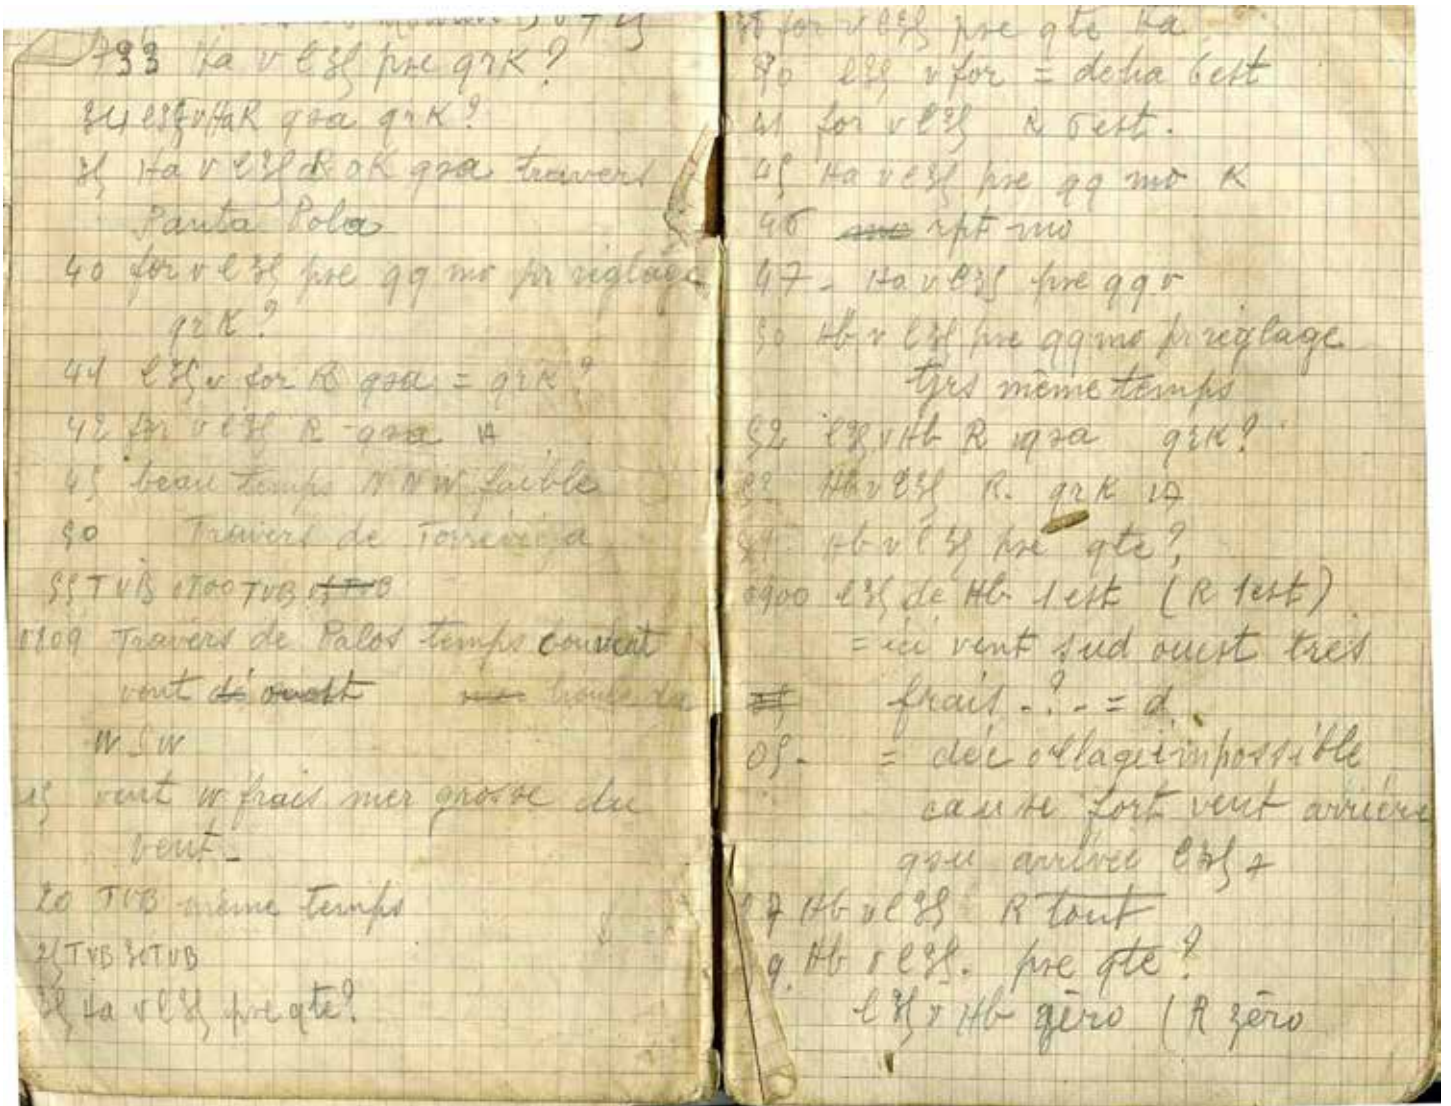 733 Ha v l35 pse qrK?
34 l35 v Ha K qsa qrK?
35 Ha v l35 R OK qsa travers
Santa Pola
40 for v l35 pse qq mo pr réglage
qrK?
41 l35 v for R qsa = qrK?
42 for v l35 R qsa
45 beau temps NNW faible
50 Travers de Torrevieja
55 TVB 0800 TVB
0809 Travers de Palos temps couvert
vent de ouest houle du
WSW
15 vent W frais mer grosse du
vent -
20 TVB même temps
25 TVB 30 TVB
35 Ha v l35 pse qte?
for v l35 pse qte Ha
40 l35 v for = de Ha 6 est
41 for v l35 R 6 est.
45 Ha v l35 pse qq mo K
46 rpt mo
47 - Ha v l35 pse qq v
50 Hb v l35 pse qq mo pr réglage
tjrs même temps
52 l35 v Hb R qsa qrK?
Hb v l35 R. qrK
Hb v l35 pse qte?
0900 l35 de Hb 1 est (R 1 est)
= ici vent sud ouest très
frais - ? - = d
05 - = décollage impossible
cause fort vent arrière
arrivée l35
Hb v l35 R tout
Hb v l35. pse qte?
l35 v Hb zéro (R zéro